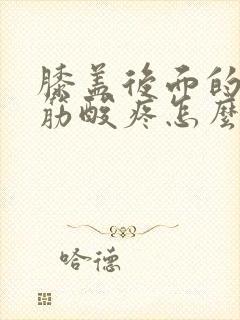 膝盖後而的
筋酸疼怎麼
哈德